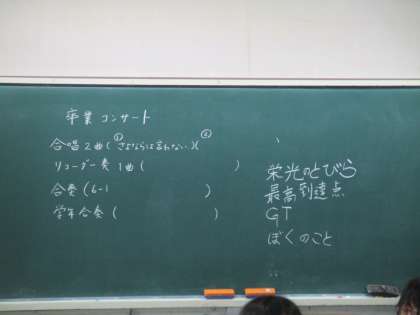 卒業コンサート
合唱2曲(①さよならは言わない)(②
リコーダー奏 1曲(　　　)
合奏(6-1　　　)
学年合奏(　　　)
栄光のとびら
最高到達点
GT
ぼくのこと